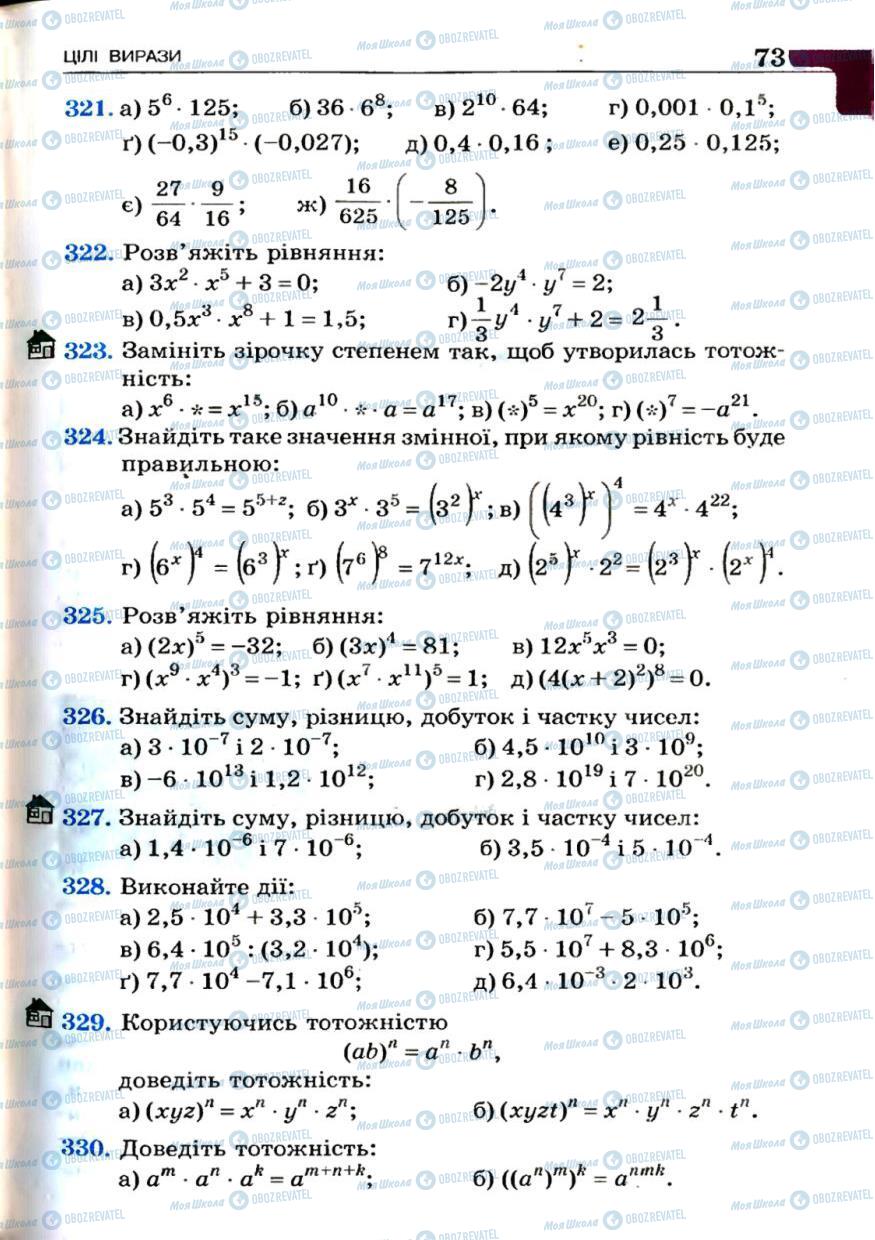 ЦІЛІ ВИРАЗИ 73
321. а) 5⁶ · 125; б) 36 · 6⁸; в) 2¹⁰ · 64; г) 0,001 · 0,1⁵;
ґ) (−0,3)¹⁵ · (−0,027); д) 0,4 · 0,16 ; е) 0,25 · 0,125;
є) 27/64 · 9/16 ; ж) 16/625 · (− 8/125).
322. Розв’яжіть рівняння:
а) 3x² · x⁵ + 3 = 0; б) −2y⁴ · y⁷ = 2;
в) 0,5x³ · x⁸ + 1 = 1,5; г) 1/3 y⁴ · y⁷ + 2 = 2 1/3 .
323. Замініть зірочку степенем так, щоб утворилась тотож-
ність:
а) x⁶ · * = x¹⁵; б) a¹⁰ · * · a = a¹⁷; в) (*)⁵ = x²⁰; г) (*)⁷ = −a²¹.
324. Знайдіть таке значення змінної, при якому рівність буде
правильною:
а) 5³ · 5⁴ = 5⁵⁺ᶻ; б) 3ˣ · 3⁵ = (3²)ˣ; в) ((4³)ˣ)⁴ = 4ˣ · 4²²;
г) (6ˣ)⁴ = (6³)ˣ; ґ) (7⁶)⁸ = 7¹²ˣ; д) (2⁵)ˣ · 2² = (2³)ˣ · (2ˣ)⁴.
325. Розв’яжіть рівняння:
а) (2x)⁵ = −32; б) (3x)⁴ = 81; в) 12x⁵x³ = 0;
г) (x⁹ · x⁴)³ = −1; ґ) (x⁷ · x¹¹)⁵ = 1; д) (4(x + 2)²)⁸ = 0.
326. Знайдіть суму, різницю, добуток і частку чисел:
а) 3 · 10⁻⁷ і 2 · 10⁻⁷; б) 4,5 · 10¹⁰ і 3 · 10⁹;
в) −6 · 10¹³ і 1,2 · 10¹²; г) 2,8 · 10¹⁹ і 7 · 10²⁰.
327. Знайдіть суму, різницю, добуток і частку чисел:
а) 1,4 · 10⁻⁶ і 7 · 10⁻⁶; б) 3,5 · 10⁻⁴ і 5 · 10⁻⁴.
328. Виконайте дії:
а) 2,5 · 10⁴ + 3,3 · 10⁵; б) 7,7 · 10⁷ − 5 · 10⁵;
в) 6,4 · 10⁵ : (3,2 · 10⁴); г) 5,5 · 10⁷ + 8,3 · 10⁶;
ґ) 7,7 · 10⁴ − 7,1 · 10⁶; д) 6,4 · 10⁻³ · 2 · 10³.
329. Користуючись тотожністю
(ab)ⁿ = aⁿ · bⁿ,
доведіть тотожність:
а) (xyz)ⁿ = xⁿ · yⁿ · zⁿ; б) (xyzt)ⁿ = xⁿ · yⁿ · zⁿ · tⁿ.
330. Доведіть тотожність:
а) aᵐ · aⁿ · aᵏ = aᵐ⁺ⁿ⁺ᵏ; б) ((aⁿ)ᵐ)ᵏ = aⁿᵐᵏ.